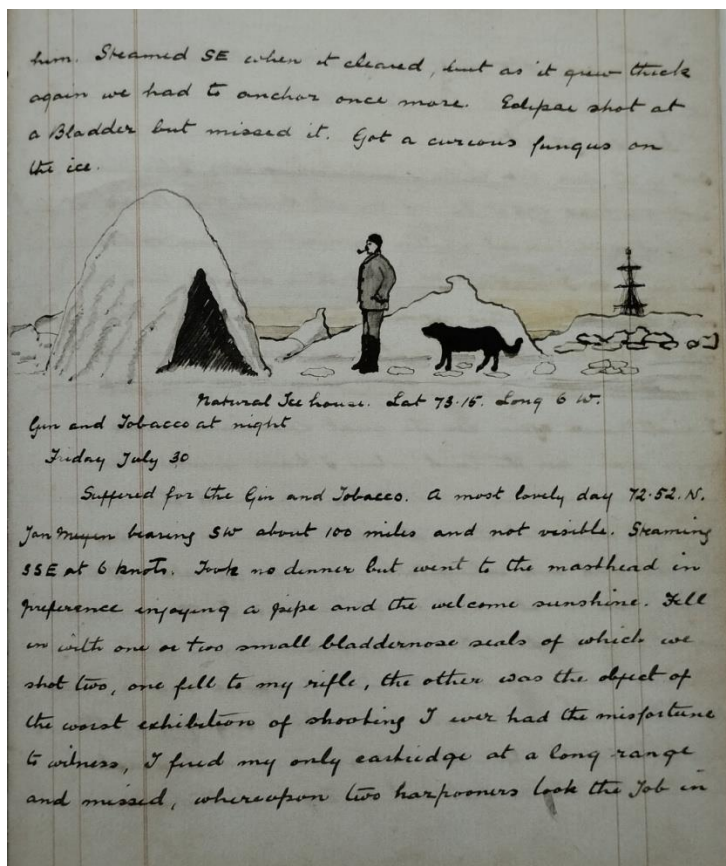 him. Steamed SE when it cleared, but as it grew thick
again we had to anchor once more. Eclipse shot at
a Bladder but missed it. Got a curious fungus on
the ice.
Natural Ice house. Lat 73·15. Long 6 W.
Gin and Tobacco at night
Friday July 30
Suffered for the Gin and Tobacco. A most lovely day 72·52.N.
Jan Meyen bearing SW about 100 miles and not visible. Steaming
SSE at 6 knots. Took no dinner but went to the masthead in
preference enjoying a pipe and the welcome sunshine. Fell
in with one or two small bladdernose seals of which we
shot two, one fell to my rifle, the other was the object of
the worst exhibition of shooting I ever had the misfortune
to witness, I fired my only cartridge at a long range
and missed, whereupon two harpooners took the Job in